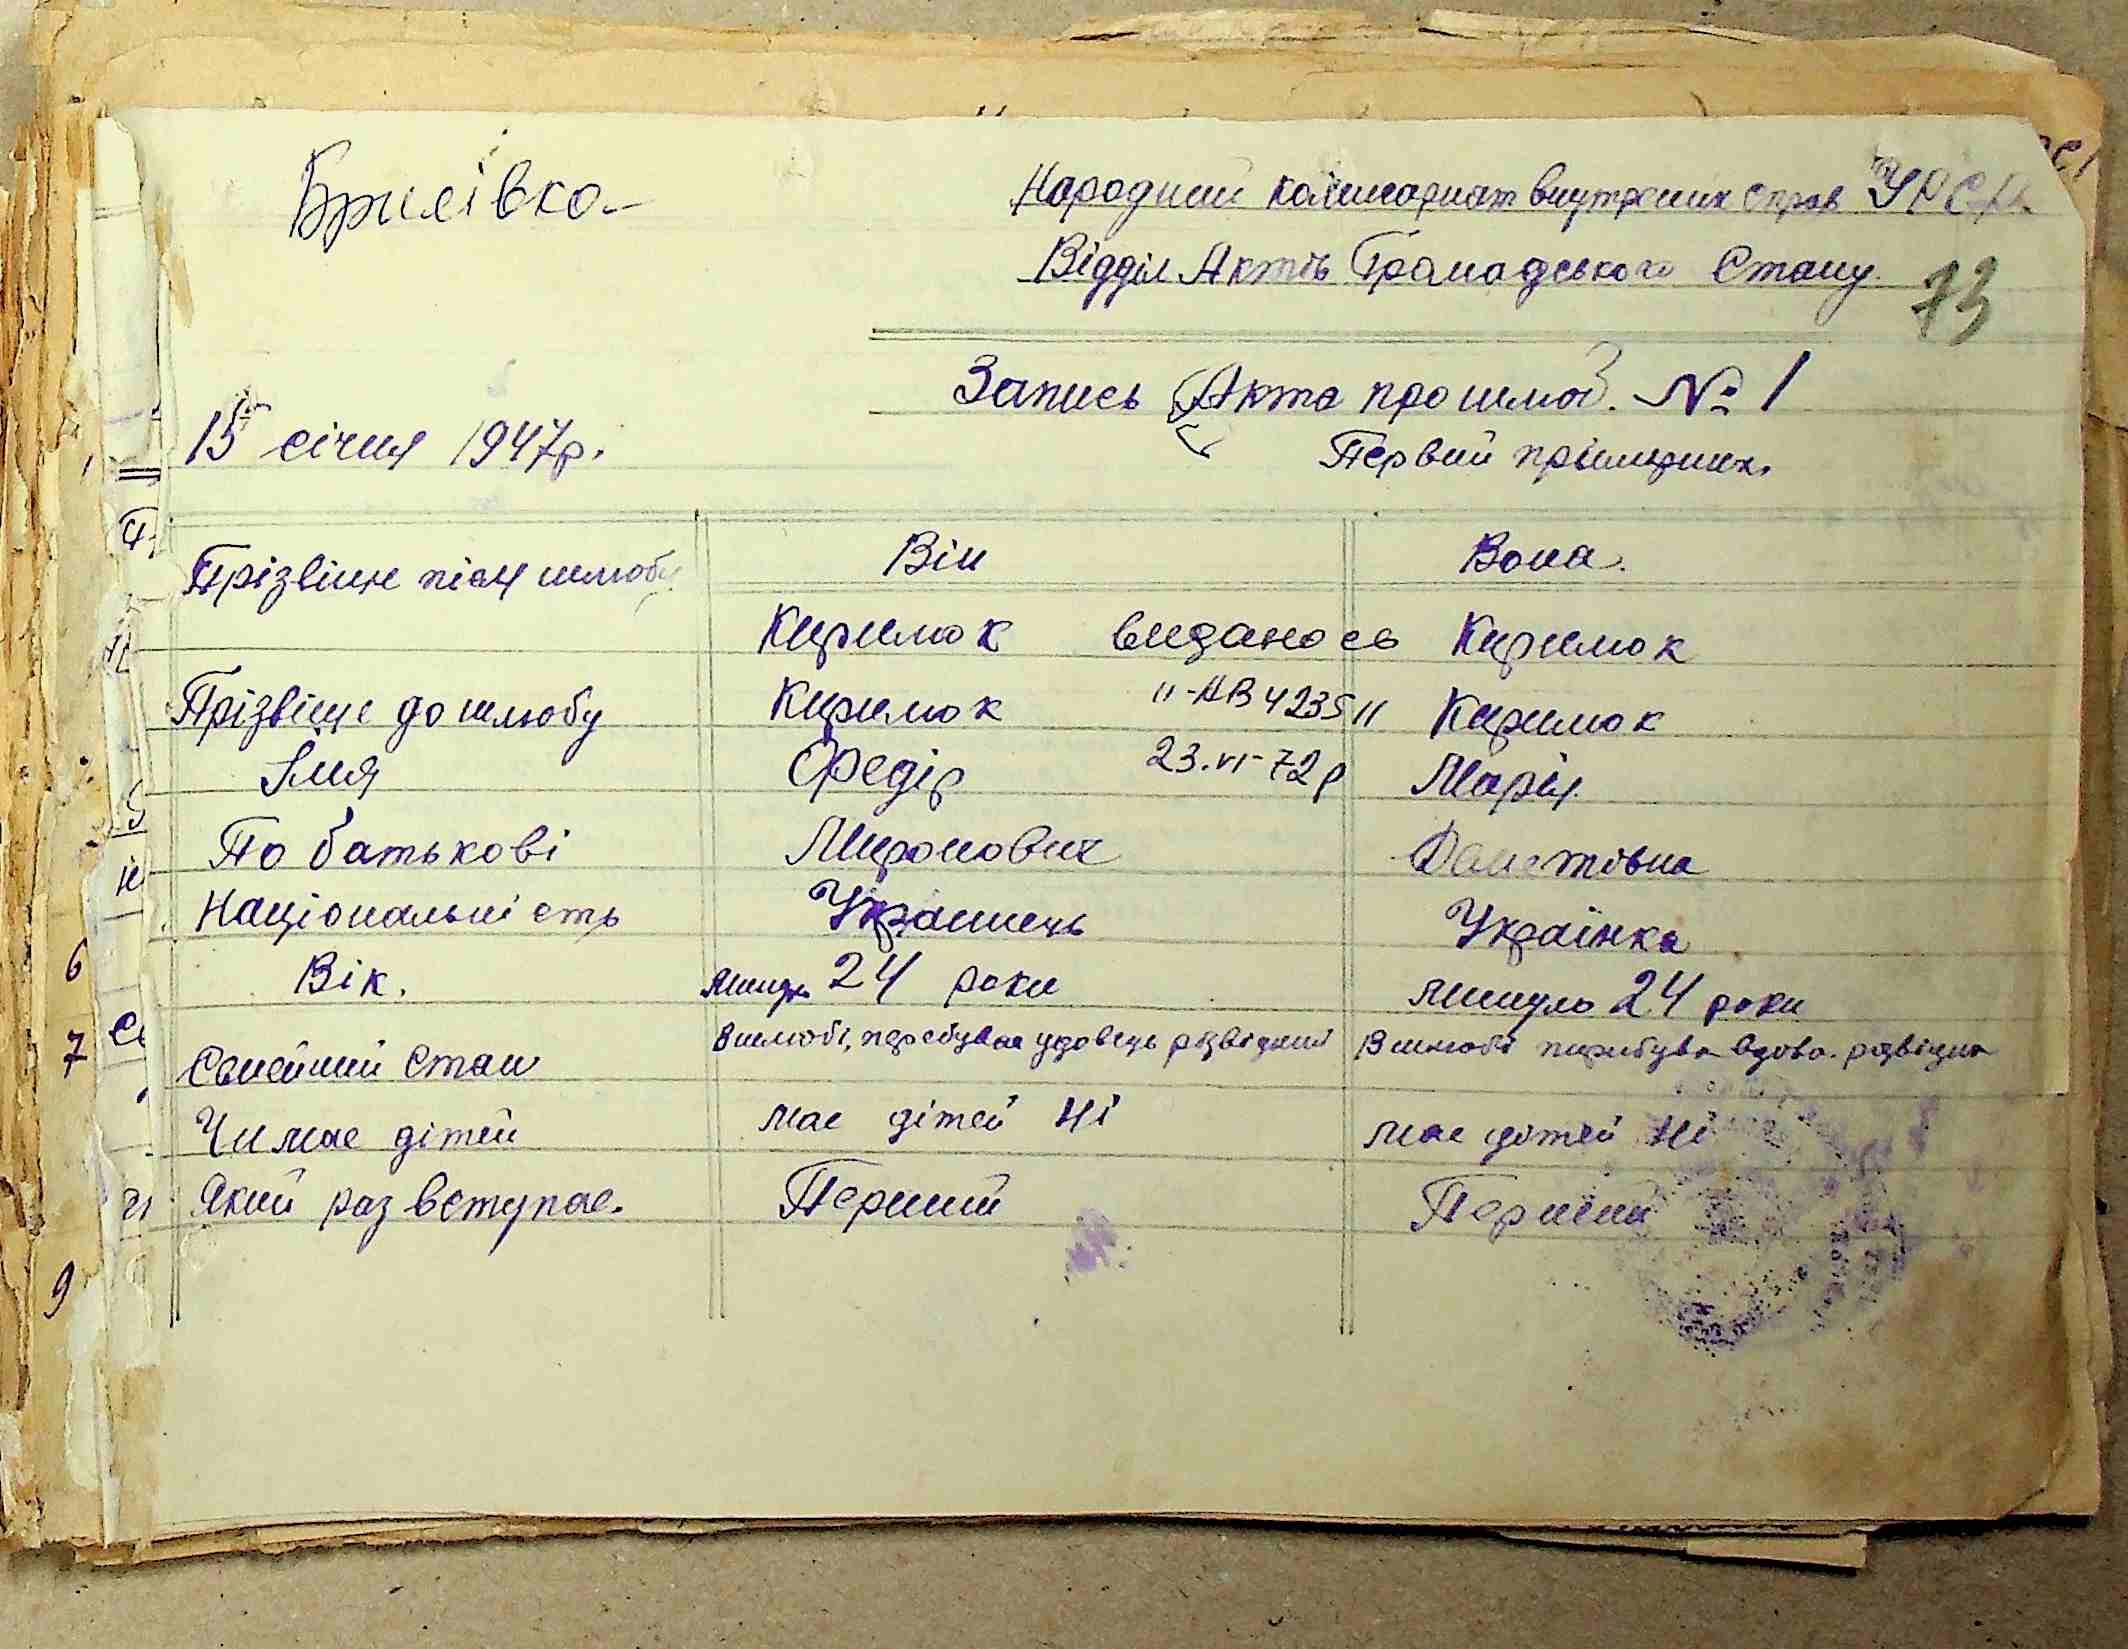 Брилівка
Народний комисариат внутрених справ УРСР.
Відділ Актів Громадського Стану.
73
Запись Акта про шлюб. № 1
15 січня 1947р.
Первий примірник.
Прізвище після шлюбу
Він
Вона.
Кирилюк виданось Кирилюк
Прізвище до шлюбу Кирилюк "-НВ 4235" Кирилюк
Імя Федір 23.VI-72р Марія
По батькові Миронович
Національність Українець Українка
Вік. Минуло 24 роки минуло 24 роки
Сімейний стан В шлюбі, перебував удовець розвідений В шлюбі перебува вдова. розвідена
Чи має дітей має дітей Ні має дітей Ні
Який раз вступає. Перший Перший
6
7
9